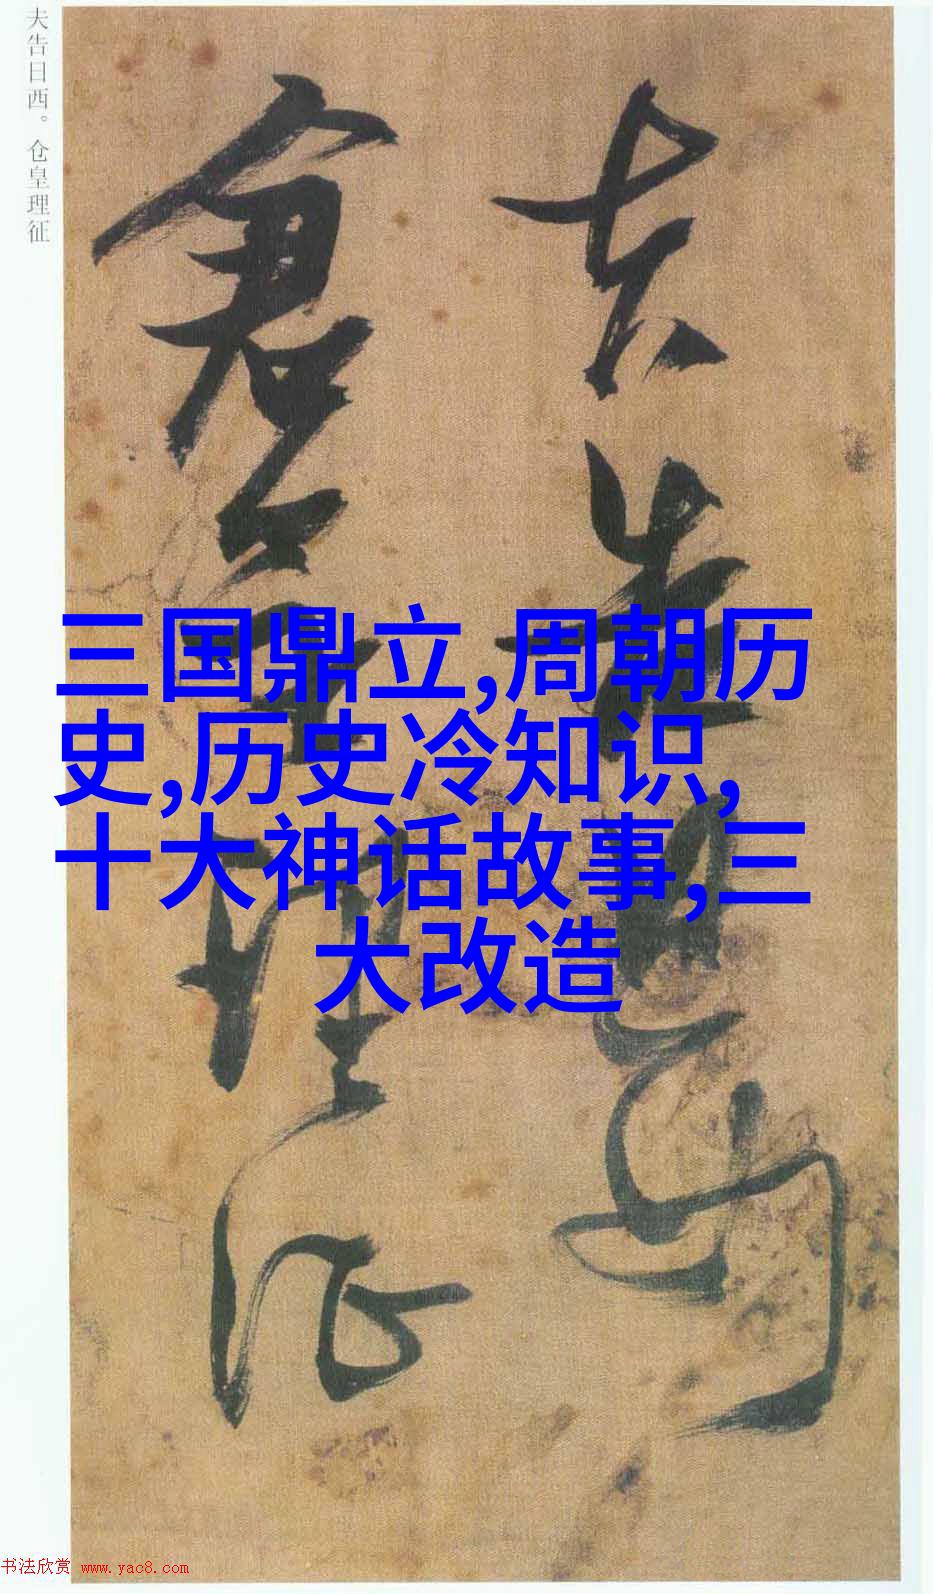 夫告日西。仓皇理征
夫告日西
仓皇理征
三国鼎立,周朝历
史,历史冷知识,
十大神话故事,三
大改造
书法欣赏 www.yac8.com